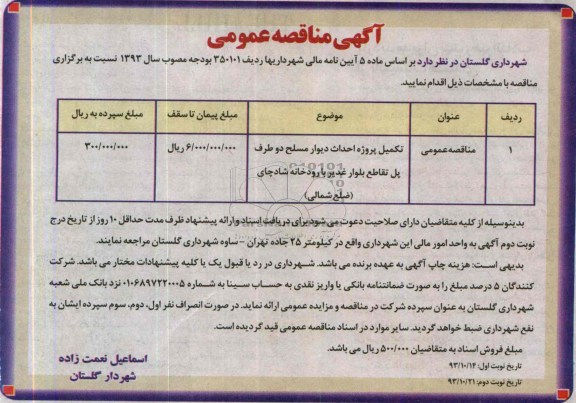 آگهی مناقصه عمومی
شهرداری گلستان در نظر دارد بر اساس ماده ۵ آیین نامه مالی شهرداریها ردیف ۳۵۰۱۰۱ بودجه مصوب سال ۱۳۹۳ نسبت به برگزاری
مناقصه با مشخصات ذیل اقدام نمایید.
ردیف عنوان موضوع مبلغ پیمان تا سقف مبلغ سپرده به ریال
۱ مناقصه عمومی تکمیل پروژه احداث دیوار مسلح دو طرف ۶/۰۰۰/۰۰۰/۰۰۰ ریال ۳۰۰/۰۰۰/۰۰۰
پل تقاطع بلوار غدیر با رودخانه شادچای
(ضلع شمالی)
بدینوسیله از کلیه متقاضیان دارای صلاحیت دعوت می شود برای دریافت اسناد و ارائه پیشنهاد ظرف مدت حداقل ۱۰ روز از تاریخ درج
نوبت دوم آگهی به واحد امور مالی این شهرداری واقع در کیلومتر ۲۵ جاده تهران - ساوه شهرداری گلستان مراجعه نمایند.
بدیهی است: هزینه چاپ آگهی به عهده برنده می باشد. شهرداری در رد یا قبول یک یا کلیه پیشنهادات مختار می باشد. شرکت
کنندگان ۵ درصد مبلغ را به صورت ضمانتنامه بانکی یا واریز نقدی به حساب سیبا به شماره ۰۱۰۶۸۹۷۲۲۰۰۰۵ نزد بانک ملی شعبه
شهرداری گلستان به عنوان سپرده شرکت در مناقصه و مزایده عمومی ارائه نماید. در صورت انصراف نفر اول، دوم، سوم سپرده ایشان به
نفع شهرداری ضبط خواهد گردید. سایر موارد در اسناد مناقصه عمومی قید گردیده است.
مبلغ فروش اسناد به متقاضیان ۵۰۰/۰۰۰ ریال می باشد.
تاریخ نوبت اول: ۹۳/۱۰/۱۴
تاریخ نوبت دوم: ۹۳/۱۰/۲۱
اسماعیل نعمت زاده
شهردار گلستان